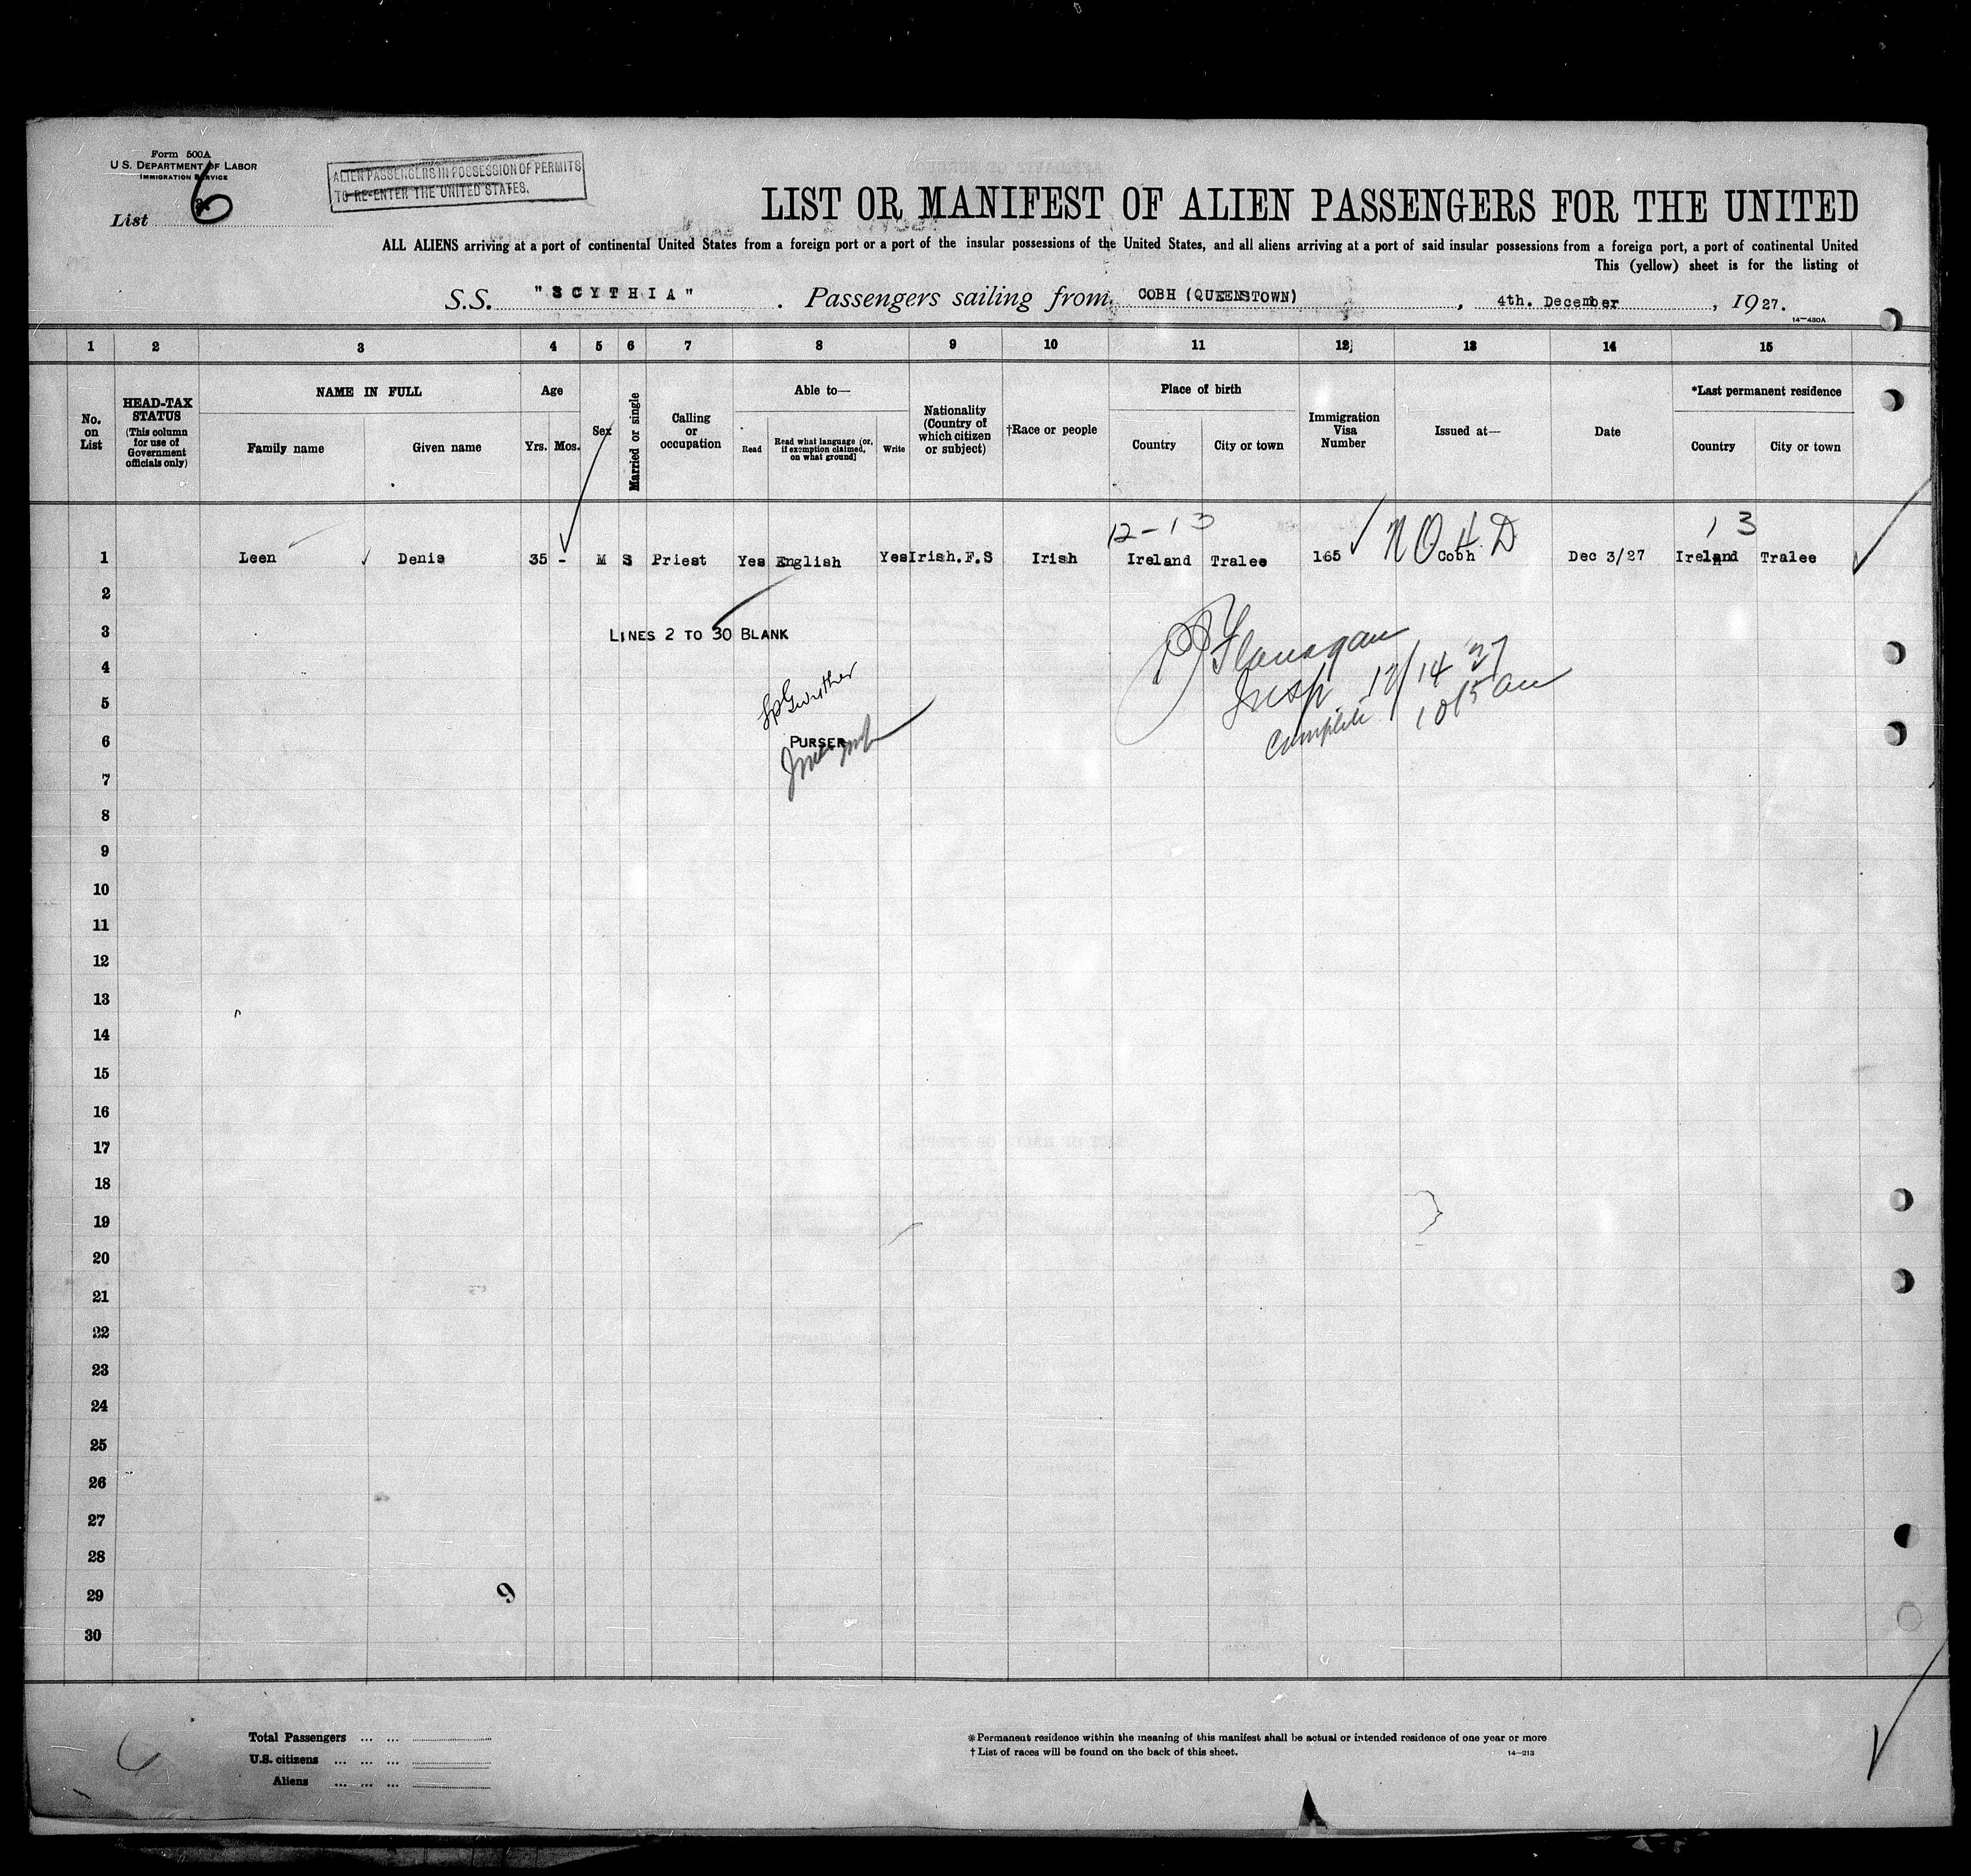 Form 500A
U.S. DEPARTMENT OF LABOR
IMMIGRATION SERVICE
List 6
ALIEN PASSENGERS IN POSSESSION OF PERMITS
TO RE-ENTER THE UNITED STATES.
LIST OR MANIFEST OF ALIEN PASSENGERS FOR THE UNITED
ALL ALIENS arriving at a port of continental United States from a foreign port or a port of the insular possessions of the United States, and all aliens arriving at a port of said insular possessions from a foreign port, a port of continental United
This (yellow) sheet is for the listing of
S.S. "SCYTHIA". Passengers sailing from COBH (QUEENSTOWN), 4th. December, 1927.
14—430A
1 2 3 4 5 6 7 8 9 10 11 12 13 14 15
No. on List
HEAD-TAX STATUS (This column for use of Government officials only)
NAME IN FULL
Family name Given name
Age
Yrs. Mos.
Sex
Married or single
Calling or occupation
Able to—
Read Read what language [or, if exemption claimed, on what ground] Write
Nationality (Country of which citizen or subject)
†Race or people
Place of birth
Country City or town
Immigration Visa Number
Issued at—
Date
*Last permanent residence
Country City or town
12-13 NOHD 13
1 Leen Denis 35 - M S Priest Yes English Yes Irish.F.S Irish Ireland Tralee 165 Cobh Dec 3/27 Ireland Tralee
2
3 LINES 2 TO 30 BLANK
Flanagan
4
Insp 12/14 '27
5
Complete 1015 am
6 PURSER
7
8
9
10
11
12
13
14
15
16
17
18
19
20
21
22
23
24
25
26
27
28
29 9
30
Total Passengers ... ...
U.S. citizens ... ... ...
Aliens ... ... ...
* Permanent residence within the meaning of this manifest shall be actual or intended residence of one year or more
† List of races will be found on the back of this sheet. 14—213